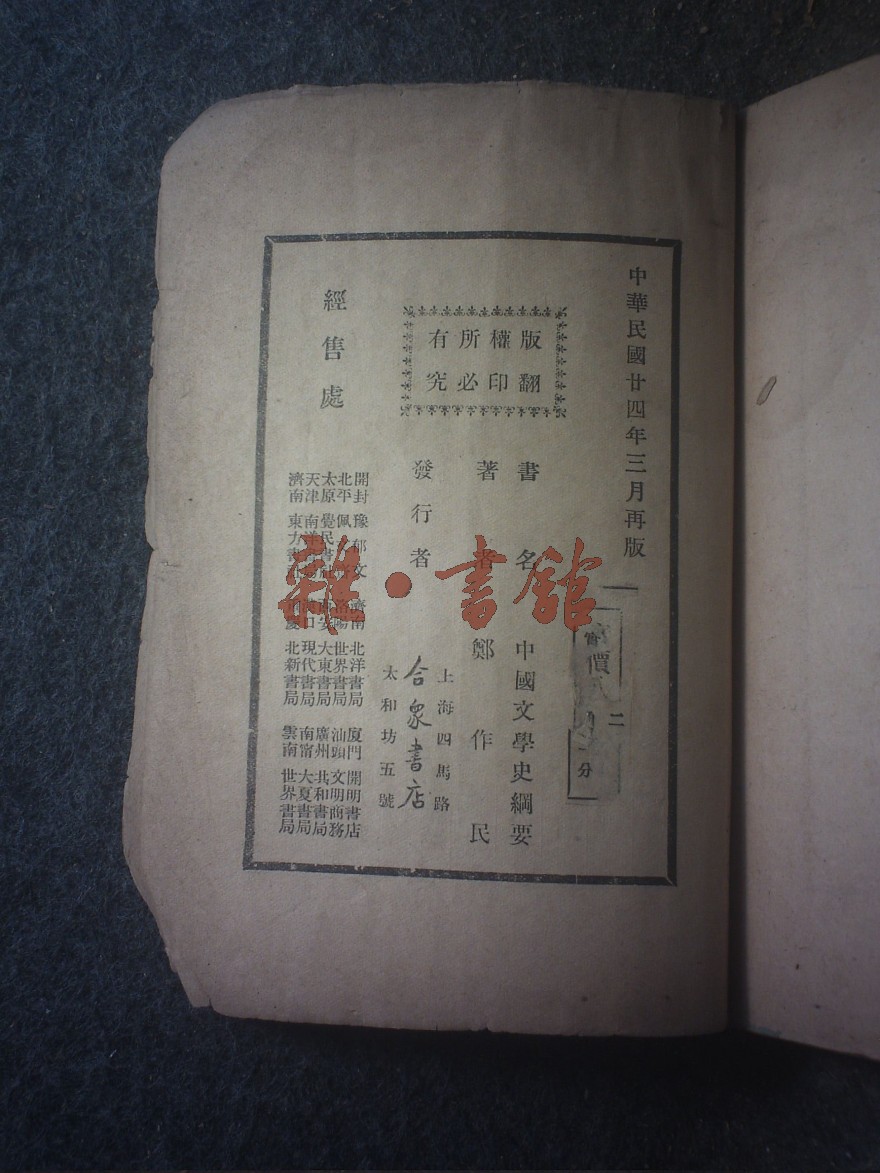 中華民國廿四年三月再版
價
二
分
版權所有
翻印必究
書名 中國文學史綱要
著者 鄭作民
發行者
上海四馬路
合衆書店
太和坊五號
經售處
開封 豫郁文
濟南 北洋書局
廈門 開明書店
北平 佩文
洛陽 世界書局
汕頭 文明商務
太原 覺民書
西安 大東書局
廣州 共和書局
天津 南洋
漢口 現代書局
南甯 大夏書局
濟南 東方
北新書局
雲南 世界書局
雜·書館